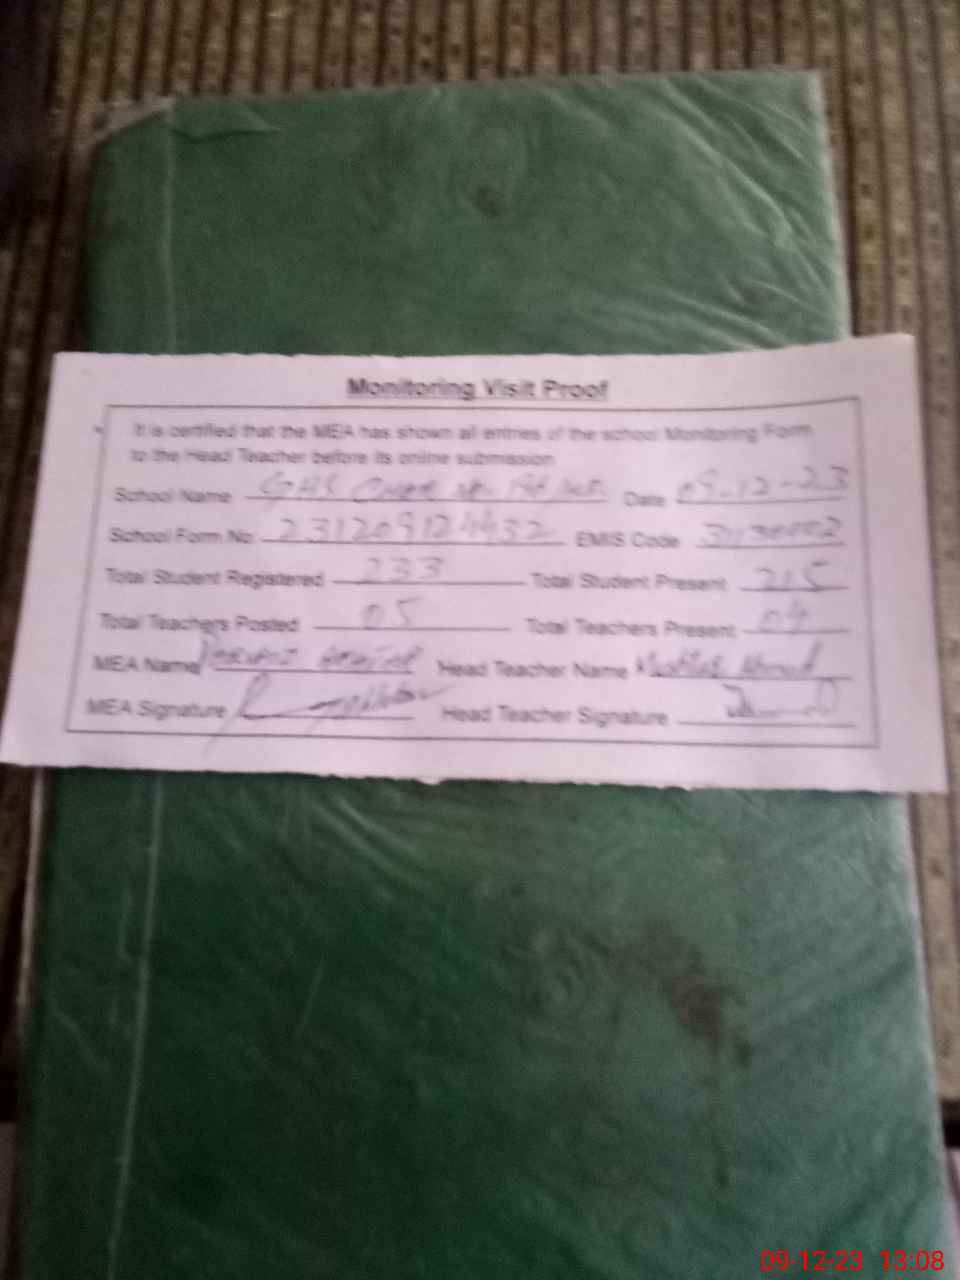 Monitoring Visit Proof
It is certified that the MEA has shown all entries of the school Monitoring Form
to the Head Teacher before its online submission
School Name GHS Date 09-12-23
School Form No 231209124432 EMIS Code
Total Student Registered 233 Total Student Present 215
Total Teachers Posted 05 Total Teachers Present 04
MEA Name Head Teacher Name Ahmad
MEA Signature Head Teacher Signature
09-12-23 13:08